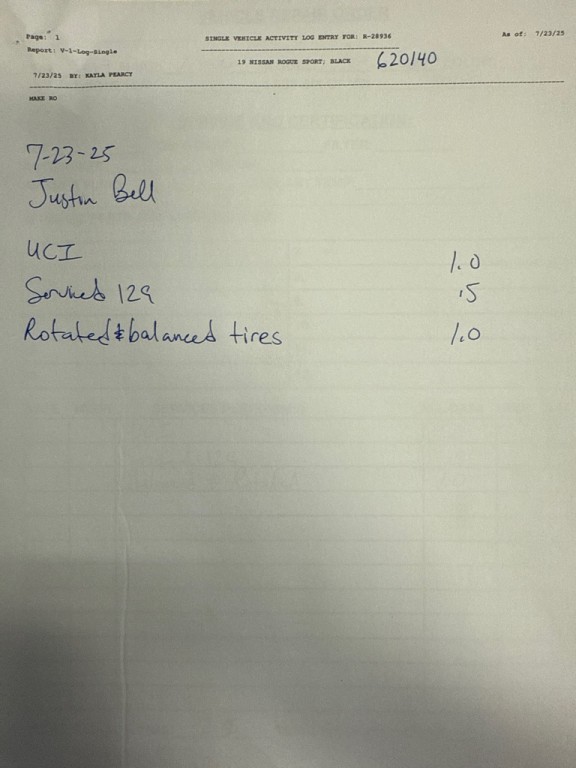 Page: 1
SINGLE VEHICLE ACTIVITY LOG ENTRY FOR: R-28936
As of: 7/23/25
Report: V-1-Log-Single
19 NISSAN ROGUE SPORT; BLACK
620140
7/23/25 BY: KAYLA PEARCY
MAKE NO
7-23-25
Justin Bell
UCI 1.0
Serviced 129 .5
Rotated & balanced tires 1.0